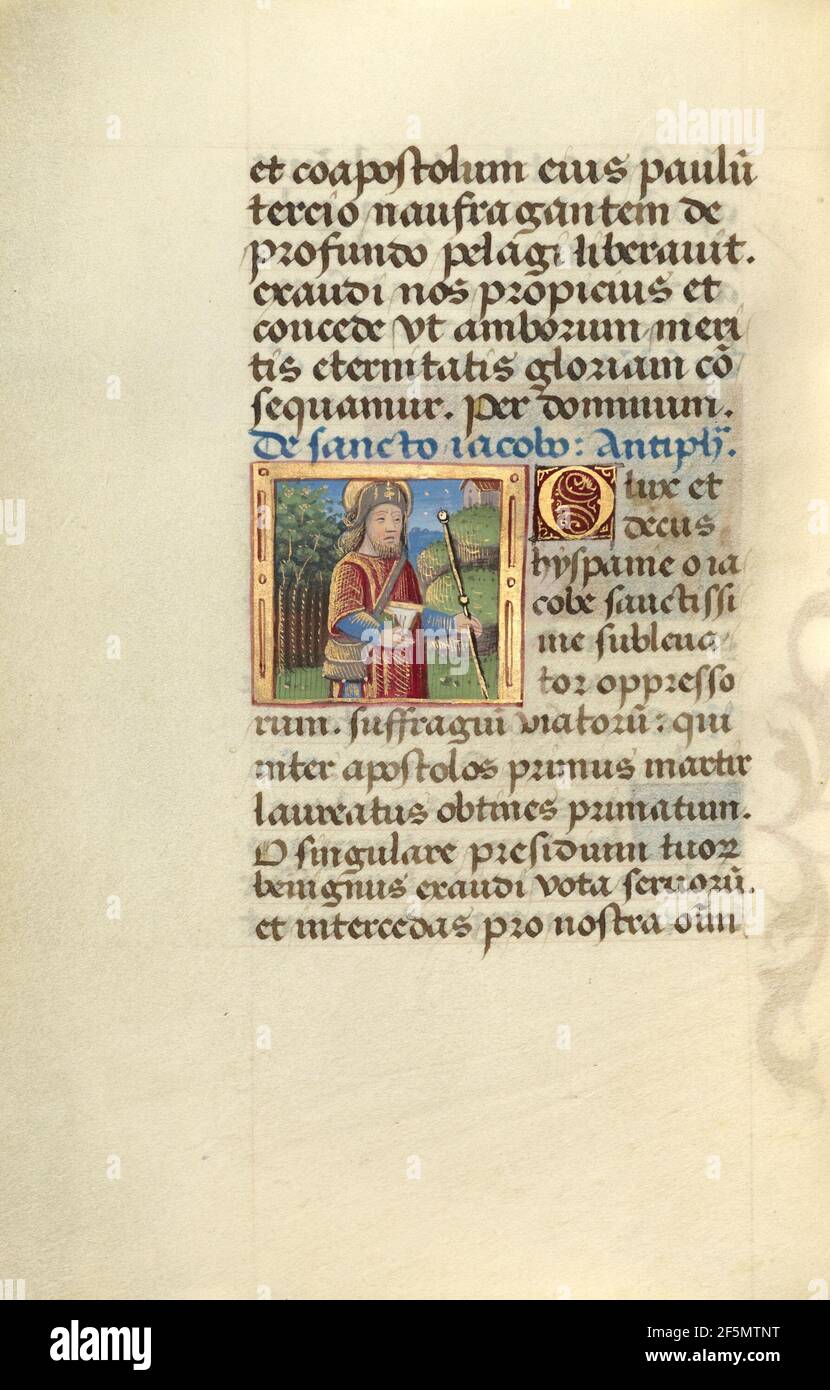 et coapostolum eius paulū
tercio naufragantem de
profundo pelagi liberauit.
exaudi nos propicius et
concede vt amborum meri
tis eternitatis gloriam cō
sequamur. Per dominum.
De sancto iacobo: Antiph̄.
O lux et
decus
hyspanie o ia
cobe sanctissi
me subleua
tor oppresso
rum. suffragiū viatorū: qui
inter apostolos primus martir
laureatus obtines primatum.
O singulare presidium tuoꝝ
benignus exaudi vota seruorū.
et intercedas pro nostra oīm
alamy
alamy
Image ID: 2F5MTNT
www.alamy.com